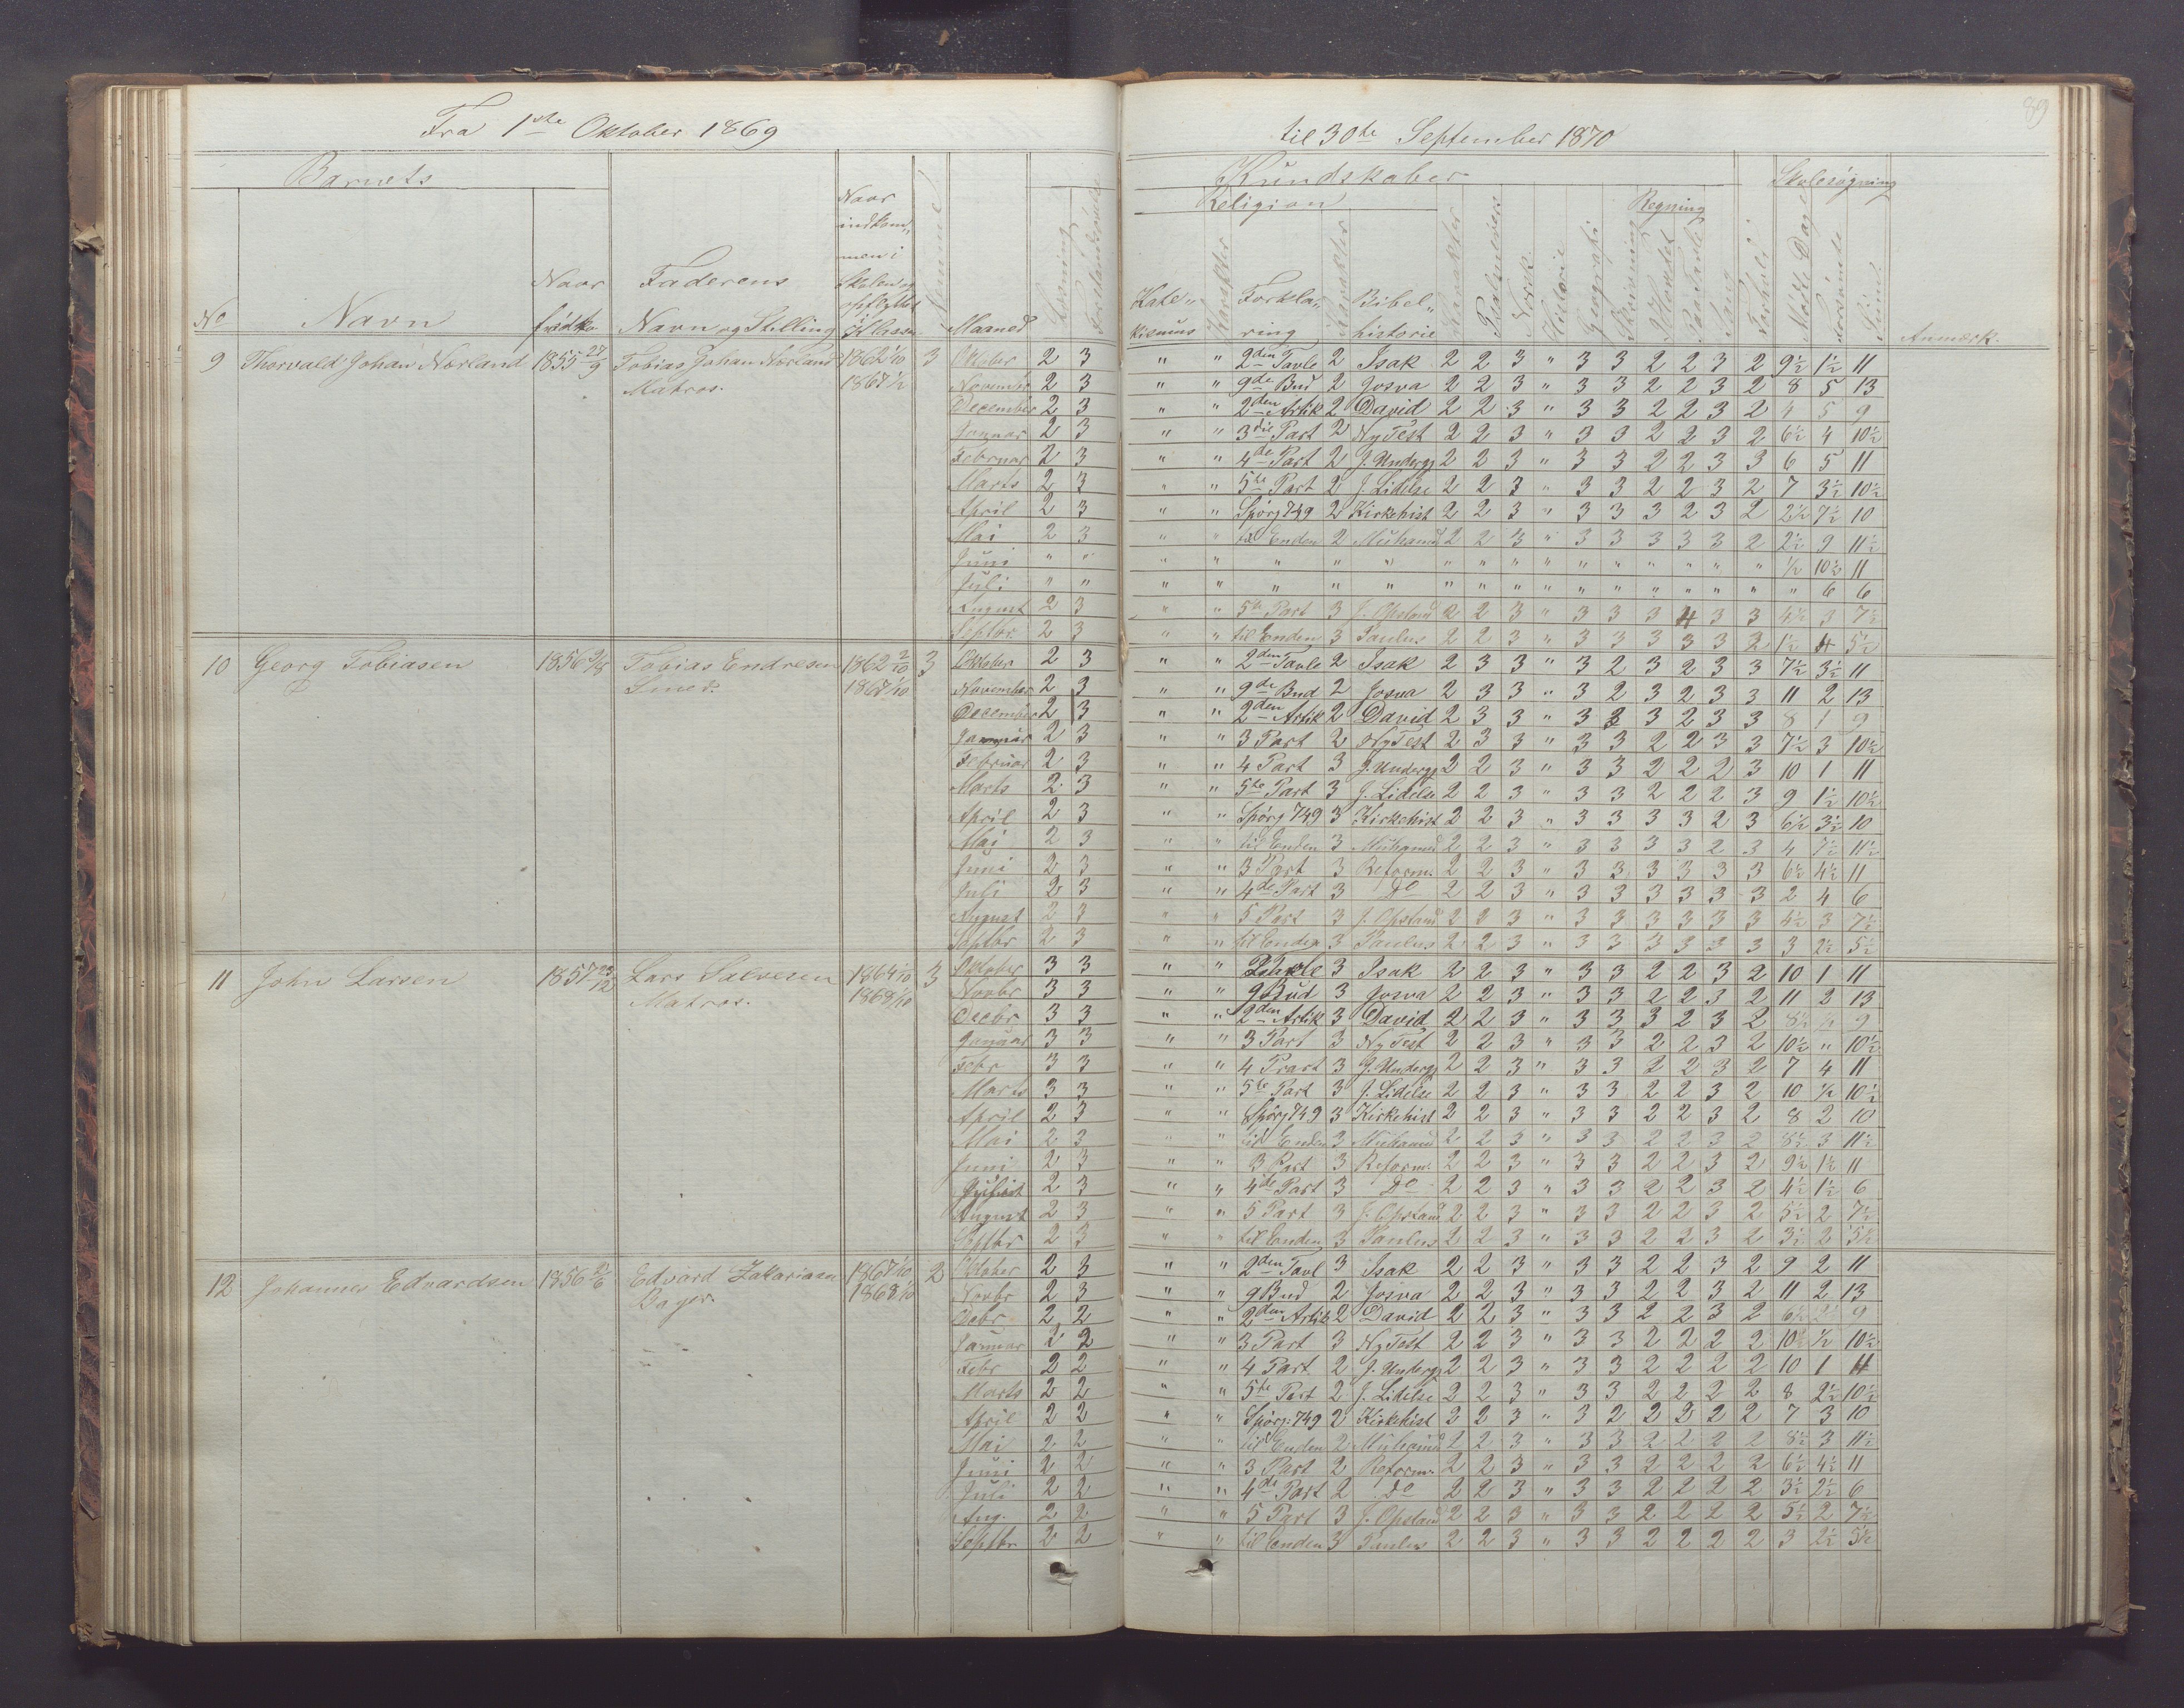 89
Fra 1ste Oktober 1869 til 30te September 1870
Barnets
Kundskaber
Skolesøgning
Religion
Regning
No
Navn
Naar
født
Faderens
Navn og Stilling
Naar
indkom„
men i
Skolen og
opflyttet
i Klassen
Maaned
Læsning
Kate„
kismus
Karakter
Forkla„
ring
Karakter
Bibel„
historie
Karakter
Psalmevers
Norsk
Historie
Geografi
Skrivning
I Hovedet
Paa Tavle
Sang
Forhold
Mødte Dage
Forsømte
Sum
Anmærk.
9 Thorvald Johan Nørland 1855 27/9 Tobias Johan Nørland 1862 1/10 3 Oktober 2 3 " " 2den Tavle 2 Isak 2 2 3 " 3 3 2 2 3 2 9½ 1½ 11
Matros.
November 2 3 " " 9de Bud 2 Josva 2 2 3 " 3 3 2 2 3 2 8 5 13
December 2 3 " " 2den Artik 2 David 2 2 3 " 3 3 2 2 3 2 4 5 9
Januar 2 3 " " 3die Part 2 Ny Test 2 2 3 " 3 3 2 2 3 2 6½ 4 10½
Februar 2 3 " " 4de Part 2 J. Undergj 2 2 3 " 3 3 2 2 3 3 6 5 11
Marts 2 3 " " 5te Part 2 J. Lidelse 2 2 3 " 3 3 2 2 3 2 7 3½ 10½
April 2 3 " " Spørg 749 2 Kirkehist 2 2 3 " 3 3 3 2 3 2 2½ 7½ 10
Mai 2 3 " " til Enden 2 Muhamed 2 2 3 " 3 3 3 3 3 2 2½ 9 11½
Juni " " " " " " " " " " " " " " " " " ½ 10½ 11
Juli " " " " " " " " " " " " " " " " " " 6 6
August 2 3 " " 5te Part 3 J. Opstand 2 2 3 " 3 3 3 4 3 3 4½ 3 7½
Septbr 2 3 " " til Enden 3 Paulus 2 2 3 " 3 3 3 3 3 2 1½ 4 5½
10 Georg Tobiasen 1856 9/8 Tobias Endresen 1862 2/10 3 Oktober 2 3 " " 2den Tavle 2 Isak 2 3 3 " 3 2 3 2 3 3 7½ 3½ 11
Smed.
1867 1/10 November 2 3 " " 9de Bud 2 Josva 2 3 3 " 3 2 3 2 3 3 11 2 13
December 2 3 " " 2den Artik 2 David 2 3 3 " 3 3 3 2 3 3 8 1 9
Januar 2 3 " " 3 Part 2 Ny Test 2 3 3 " 3 3 2 2 3 3 7½ 3 10½
Februar 2 3 " " 4 Part 3 J. Undergj 2 2 3 " 3 3 2 2 2 3 10 1 11
Marts 2 3 " " 5te Part 3 J. Lidelse 2 2 3 " 3 3 2 2 2 3 9 1½ 10½
April 2 3 " " Spørg 749 3 Kirkehist 2 2 3 " 3 3 3 3 2 3 6½ 3½ 10
Mai 2 3 " " til Enden 3 Muhamed 2 2 3 " 3 3 3 3 2 3 4 7½ 11½
Juni 2 3 " " 3 Part 3 Reform. 2 2 3 " 3 3 3 3 3 3 6½ 4½ 11
Juli 2 3 " " 4de Part 3 Do 2 2 3 " 3 3 3 3 3 3 2 4 6
August 2 3 " " 5 Part 3 J. Opstand 2 2 3 " 3 3 3 3 3 3 4½ 3 7½
Septbr 2 3 " " til Enden 3 Paulus 2 2 3 " 3 3 3 3 3 3 3 2½ 5½
11 John Larsen 1857 23/12 Lars Salvesen 1864 1/10 3 Oktober 3 3 " " 3 Isak 2 2 3 " 3 3 2 2 3 2 10 1 11
Matros.
1868 1/10 Novbr 3 3 " " 9 Bud 3 Josva 2 2 3 " 3 3 2 2 3 2 11 2 13
Decbr 3 3 " " 2den Artik 3 David 2 2 3 " 3 3 3 2 3 2 8½ ½ 9
Januar 3 3 " " 3 Part 3 Ny Test 2 2 3 " 3 3 2 2 3 2 10½ " 10½
Febr 3 3 " " 4 Prart 3 J. Undergj 2 2 3 " 3 3 2 2 3 2 7 4 11
Marts 3 3 " " 5te Part 3 J. Lidelse 2 2 3 " 3 3 2 2 3 2 10 ½ 10½
April 2 3 " " Spørg 749 3 Kirkehist 2 2 3 " 3 3 2 2 3 2 8 2 10
Mai 2 3 " " til Enden 3 Muhamed 2 2 3 " 3 3 2 2 3 2 8½ 3 11½
Juni 2 3 " " 3 Part 3 Reform. 2 2 3 " 3 3 2 2 3 2 9½ 1½ 11
2 3 " " 4de Part 3 Do 2 2 3 " 3 3 2 2 3 2 4½ 1½ 6
August 2 3 " " 5 Part 3 J. Opstand 2 2 3 " 3 3 2 2 3 2 5½ 2 7½
Septbr 2 3 " " til Enden 3 Paulus 2 2 3 " 3 3 2 2 3 2 3½ 2 5½
12 Johannes Edvardsen 1856 21/6 Edvard Zakariasen 1867 1/10 2 Oktober 2 3 " " 2den Tavl 3 Isak 2 2 3 " 3 3 2 2 3 2 9 2 11
Bager.
1868 1/10 Novbr 2 3 " " 9 Bud 2 Josva 2 2 3 " 3 3 2 2 3 2 11 2 13
Debr 2 2 " " 2den Artik 2 David 2 2 3 " 3 3 2 2 3 2 6½ 2½ 9
Januar 2 2 " " 3 Part 3 Ny Test 2 2 3 " 3 3 2 2 2 2 10 ½ 10½
Febr 2 2 " " 4 Part 2 J. Undergj 2 2 3 " 3 3 2 2 2 2 10 1 11
Marts 2 2 " " 5te Part 2 J. Lidelse 2 2 3 " 3 3 2 2 2 2 8 2½ 10½
April 2 2 " " Spørg: 749 2 Kirkehist 2 2 3 " 3 2 2 2 2 2 7 3 10
Mai 2 2 " " til Enden 2 Muhamed 2 2 3 " 3 3 2 2 2 2 8½ 3 11½
Juni 2 2 " " 3 Part 2 Reform. 2 2 3 " 3 3 2 2 2 2 6½ 4½ 11
Juli 2 2 " " 4de Part 2 Do 2 2 3 " 3 3 2 2 2 2 3½ 2½ 6
Aug. 2 2 " " 5 Part 3 J. Opstand 2 2 3 " 3 3 2 2 2 2 5½ 2 7½
Septbr 2 2 " " til Enden 3 Paulus 2 2 3 " 3 3 2 2 2 2 3 2½ 5½